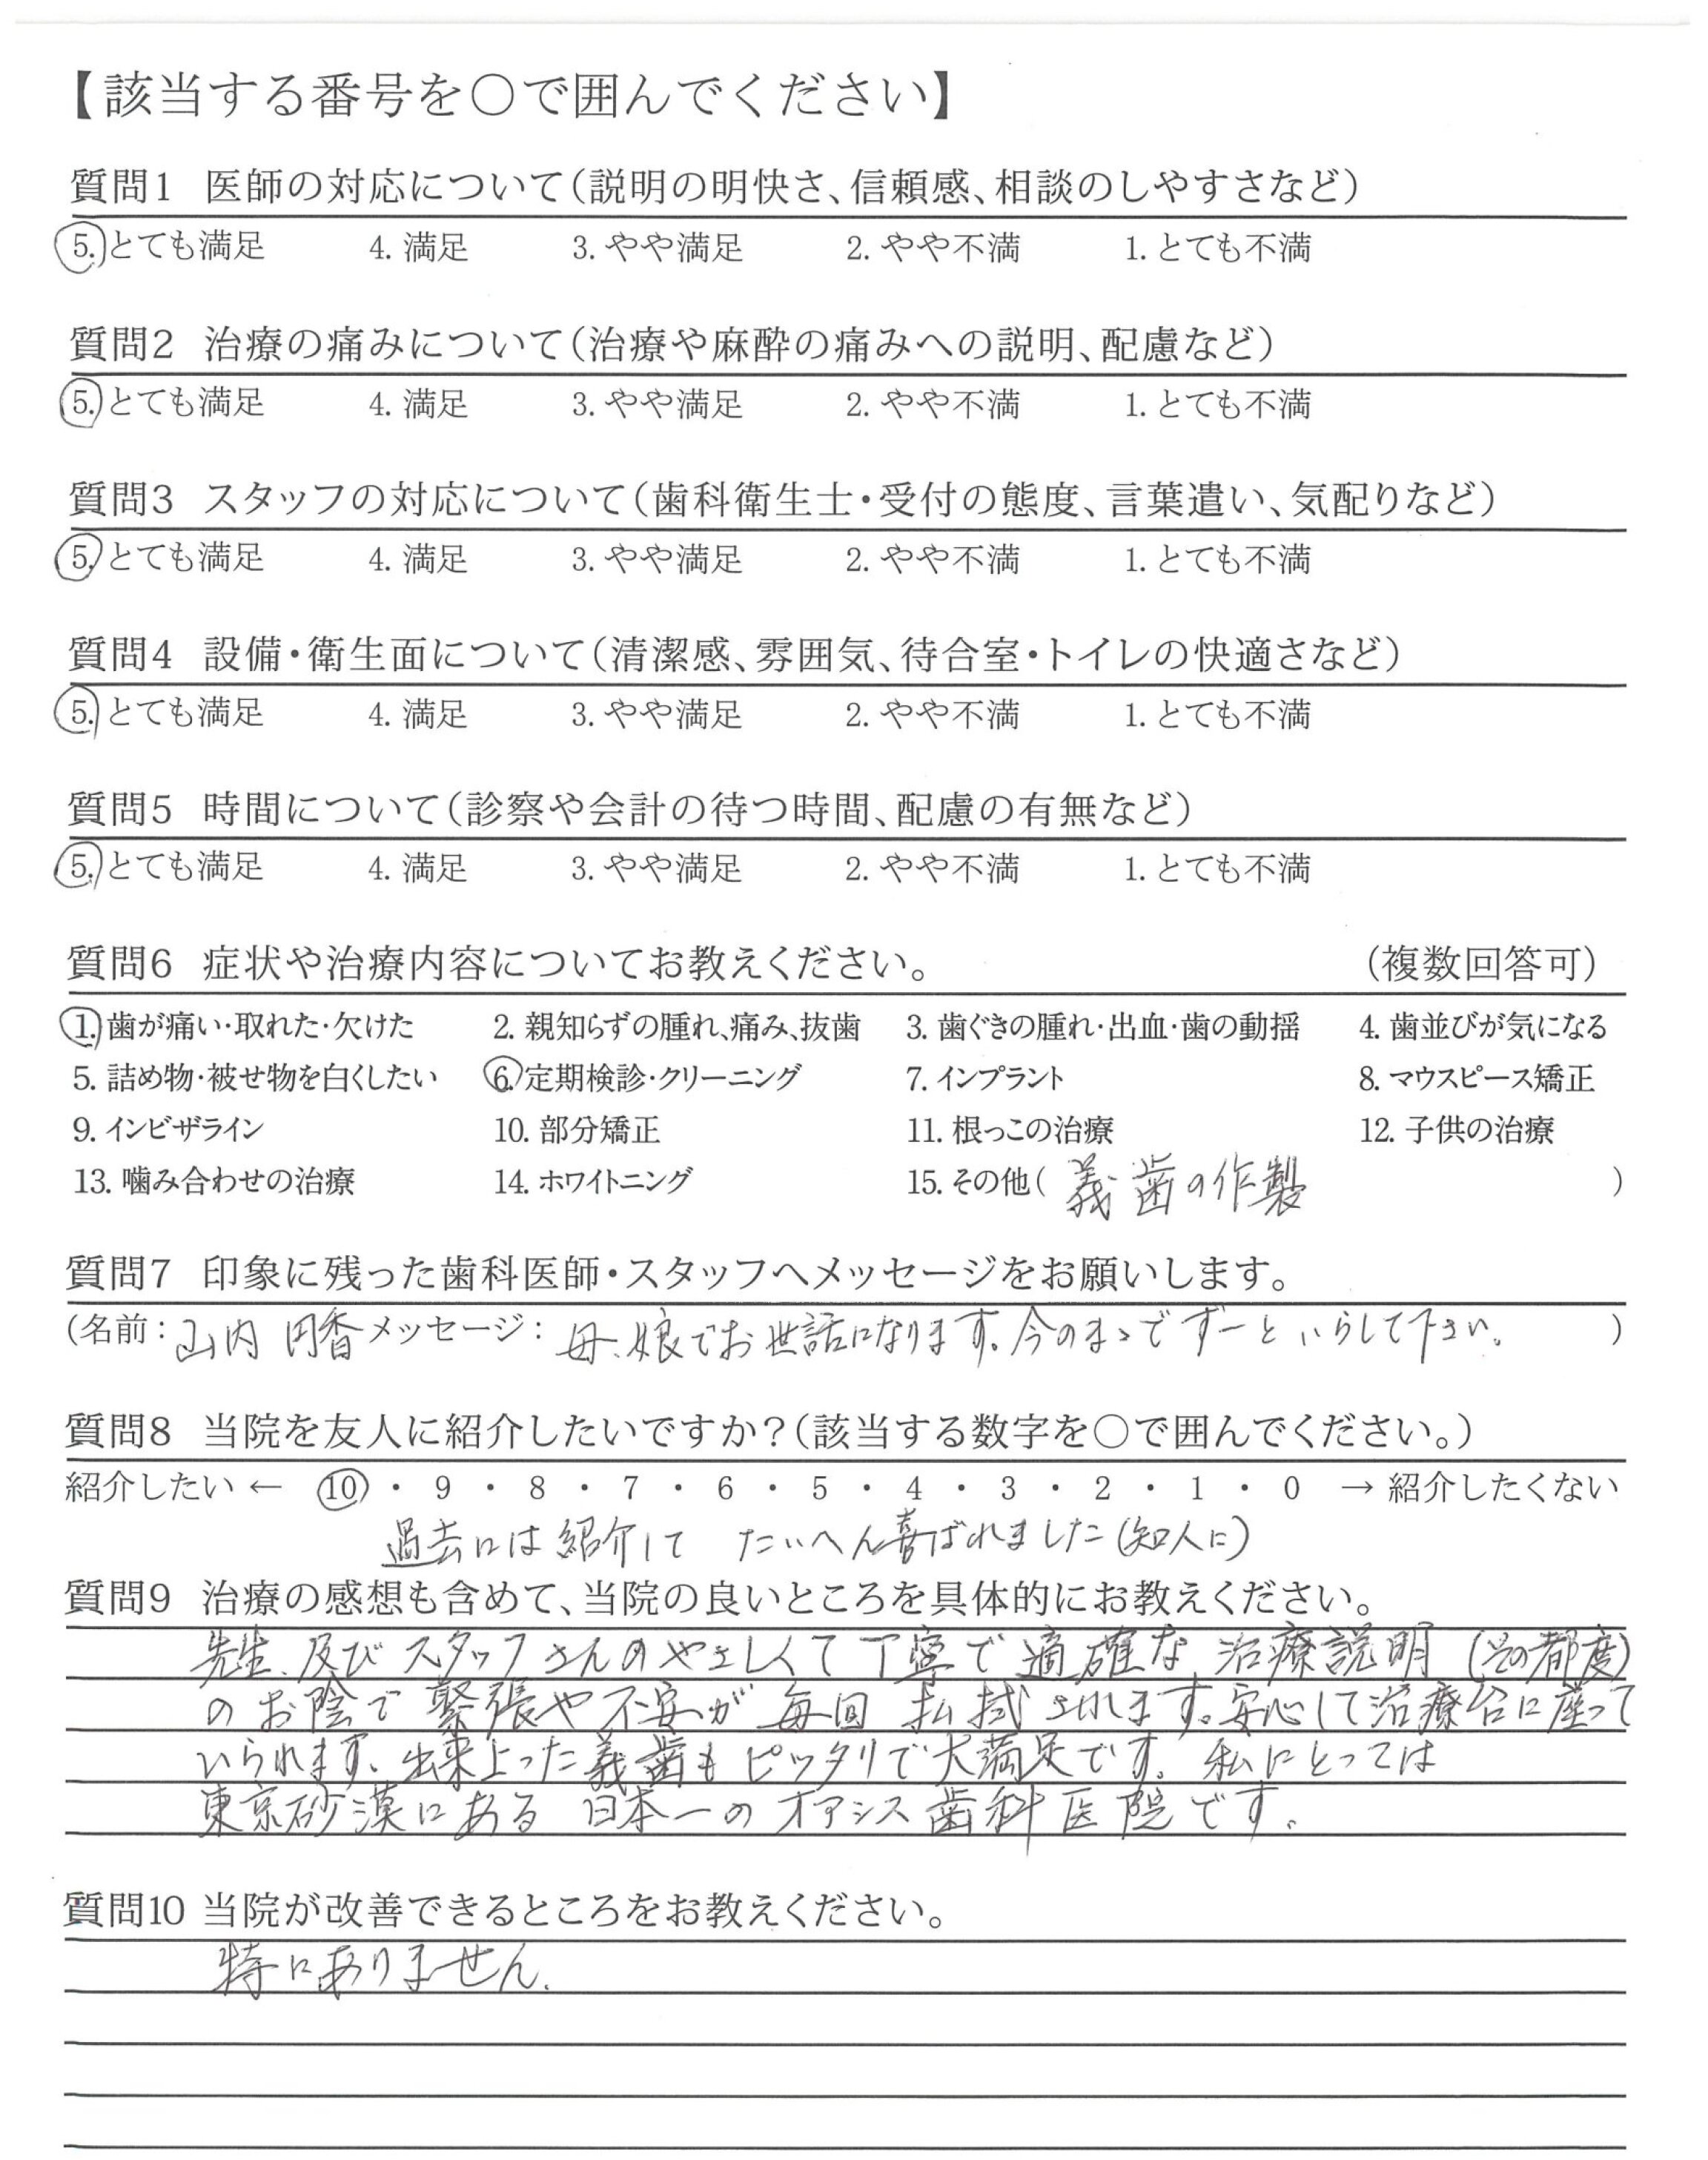 【該当する番号を○で囲んでください】
質問1 医師の対応について(説明の明快さ、信頼感、相談のしやすさなど)
5. とても満足 4. 満足 3. やや満足 2. やや不満 1. とても不満
質問2 治療の痛みについて(治療や麻酔の痛みへの説明、配慮など)
5. とても満足 4. 満足 3. やや満足 2. やや不満 1. とても不満
質問3 スタッフの対応について(歯科衛生士・受付の態度、言葉遣い、気配りなど)
5. とても満足 4. 満足 3. やや満足 2. やや不満 1. とても不満
質問4 設備・衛生面について(清潔感、雰囲気、待合室・トイレの快適さなど)
5. とても満足 4. 満足 3. やや満足 2. やや不満 1. とても不満
質問5 時間について(診察や会計の待つ時間、配慮の有無など)
5. とても満足 4. 満足 3. やや満足 2. やや不満 1. とても不満
質問6 症状や治療内容についてお教えください。 (複数回答可)
1. 歯が痛い・取れた・欠けた 2. 親知らずの腫れ、痛み、抜歯 3. 歯ぐきの腫れ・出血・歯の動揺 4. 歯並びが気になる
5. 詰め物・被せ物を白くしたい 6. 定期検診・クリーニング 7. インプラント 8. マウスピース矯正
9. インビザライン 10. 部分矯正 11. 根っこの治療 12. 子供の治療
13. 噛み合わせの治療 14. ホワイトニング 15. その他( 義歯の作製 )
質問7 印象に残った歯科医師・スタッフへメッセージをお願いします。
(名前: 山内 円香 メッセージ: 母、娘でお世話になります。今のまゝでずーといらして下さい。 )
質問8 当院を友人に紹介したいですか?(該当する数字を○で囲んでください。)
紹介したい ← 10 ・ 9 ・ 8 ・ 7 ・ 6 ・ 5 ・ 4 ・ 3 ・ 2 ・ 1 ・ 0 → 紹介したくない
過去には紹介して たいへん喜ばれました(知人に)
質問9 治療の感想も含めて、当院の良いところを具体的にお教えください。
先生、及びスタッフさんのやさしくて丁寧で適確な治療説明(その都度)
のお陰で緊張や不安が毎回払拭されます。安心して治療台に座って
いられます。出来上った義歯もピッタリで大満足です。私にとっては
東京砂漠にある 日本一のオアシス歯科医院です。
質問10 当院が改善できるところをお教えください。
特にありません。